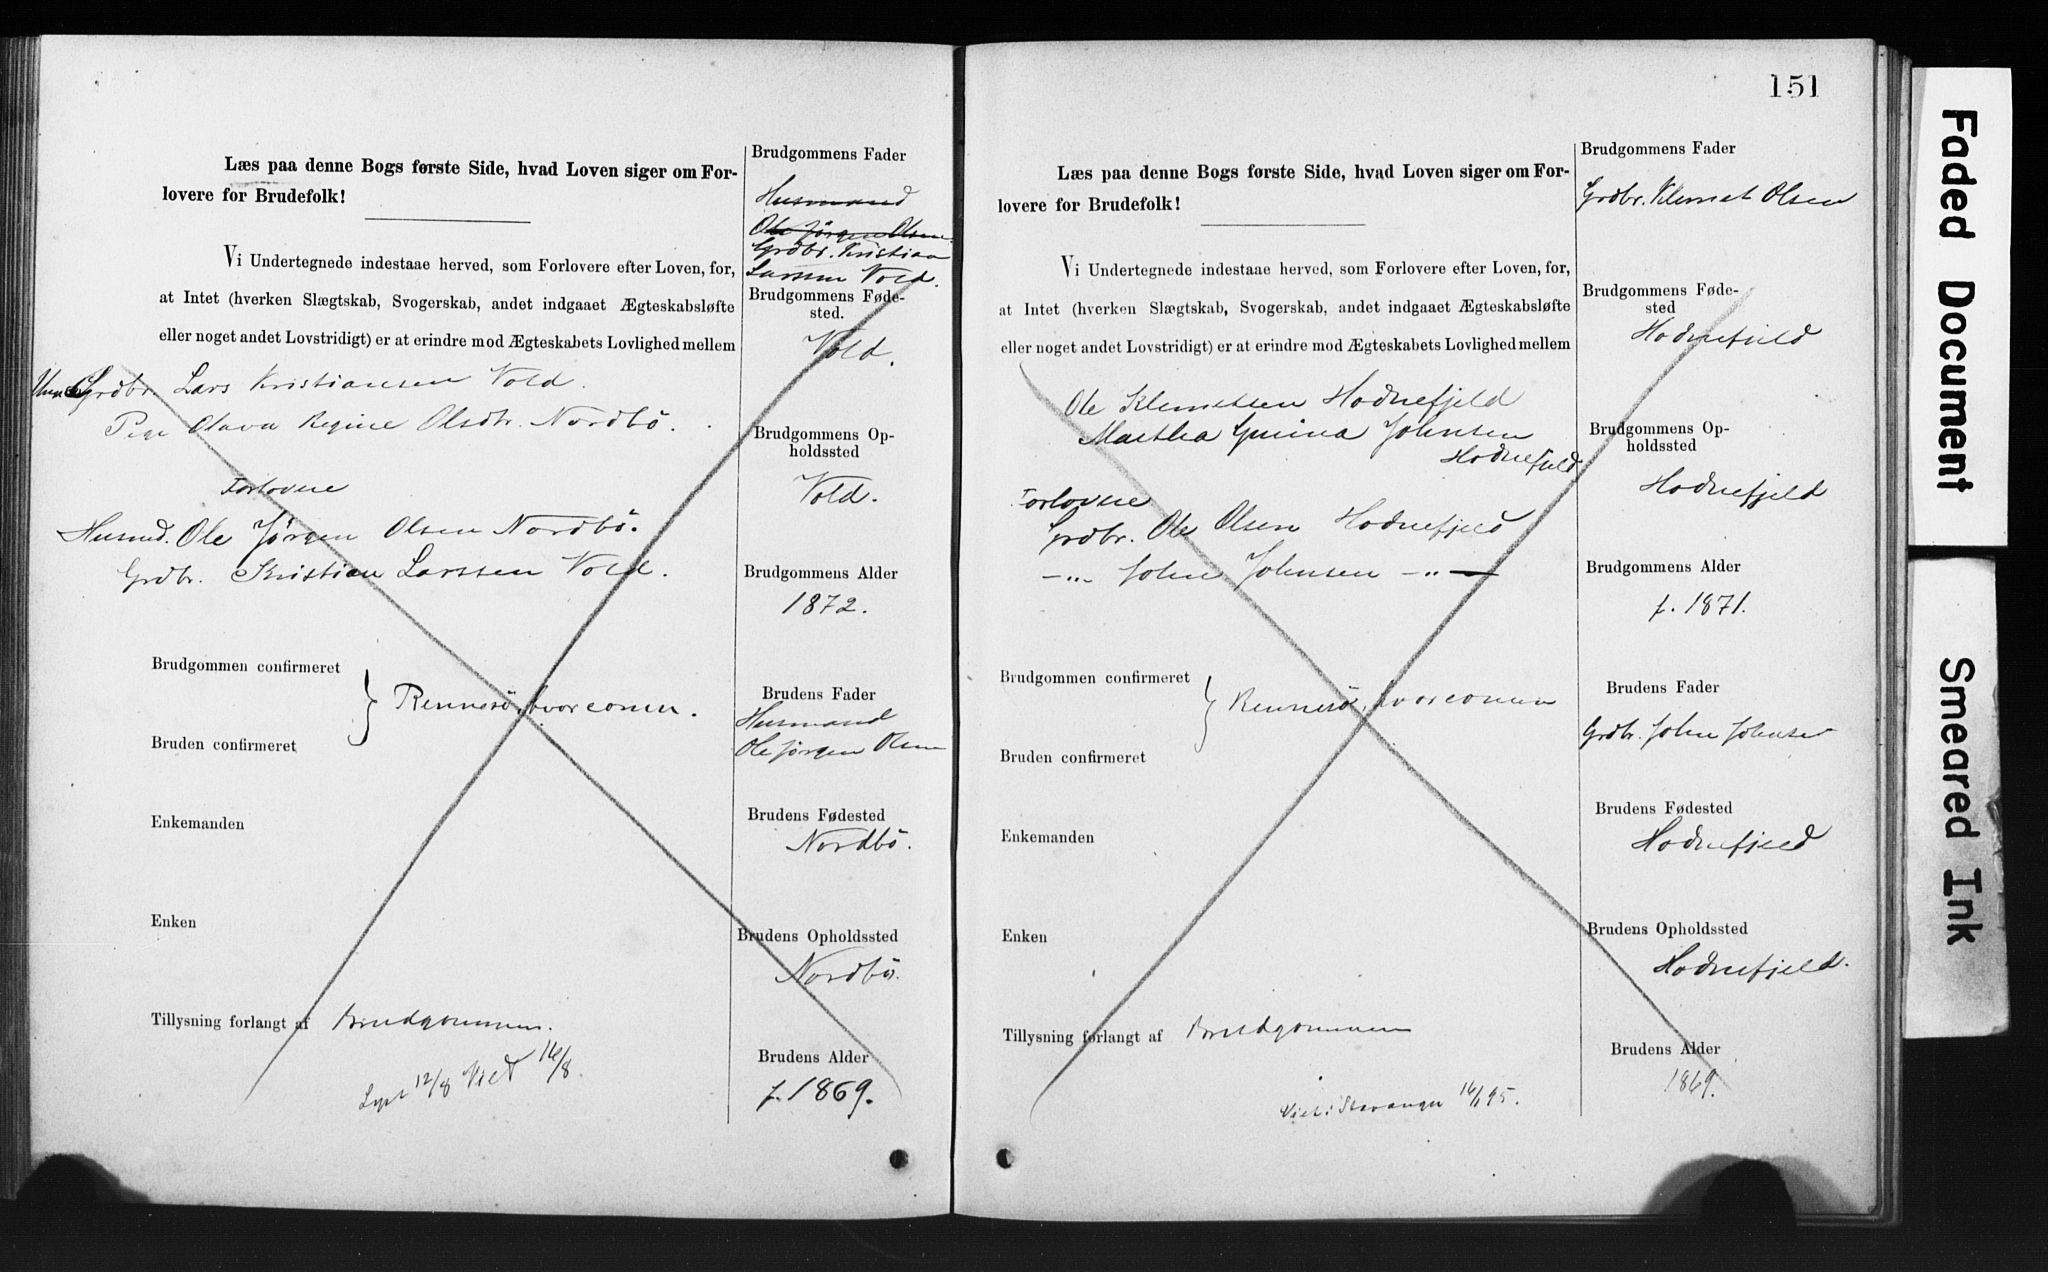 Læs paa denne Bogs første Side, hvad Loven siger om For-
lovere for Brudefolk!
Vi Undertegnede indestaae herved, som Forlovere efter Loven, for,
at Intet (hverken Slægtskab, Svogerskab, andet indgaaet Ægteskabsløfte
eller noget andet Lovstridigt) er at erindre mod Ægteskabets Lovlighed mellem
Grdbr. Lars Kristiansen Vold.
Pige Olava Regine Olsdtr. Nordbö.
Forlovere
Husmd. Ole Jørgen Olsen Nordbö.
Grdbr. Kristian Larssen Vold.
Brudgommen confirmeret
Rennesö, hvorcomm.
Bruden confirmeret
Enkemanden
Enken
Tillysning forlangt af Brudgommen.
Lyst 12/8 Viet 16/8.
Brudgommens Fader
Husmand
Ole Jørgen Olsen.
Grdbr. Kristian
Larssen Vold.
Brudgommens Føde-
sted.
Vold.
Brudgommens Op-
holdssted
Vold.
Brudgommens Alder
1872.
Brudens Fader
Husmand
Ole Jørgen Olsen
Brudens Fødested
Nordbö.
Brudens Opholdssted
Nordbö.
Brudens Alder
f. 1869.
151
Læs paa denne Bogs første Side, hvad Loven siger om For-
lovere for Brudefolk!
Vi Undertegnede indestaae herved, som Forlovere efter Loven, for,
at Intet (hverken Slægtskab, Svogerskab, andet indgaaet Ægteskabsløfte
eller noget andet Lovstridigt) er at erindre mod Ægteskabets Lovlighed mellem
Ole Klemetsen Hodnefjeld
Martha Gurina Johnsen
Hodnefjeld
Forlovere
Grdbr. Ole Olsen Hodnefjeld
—„— John Johnsen —„—
Brudgommen confirmeret
Rennesö, hvorcomm
Bruden confirmeret
Enkemanden
Enken
Tillysning forlangt af Brudgommen
Viet i Stavanger 16/1 95.
Brudgommens Fader
Grdbr. Klemet Olsen
Brudgommens Føde-
sted
Hodnefjeld
Brudgommens Op-
holdssted
Hodnefjeld
Brudgommens Alder
f. 1871.
Brudens Fader
Grdbr. John Johnsen
Brudens Fødested
Hodnefjeld
Brudens Opholdssted
Hodnefjeld.
Brudens Alder
1869.
Faded Document
Smeared Ink